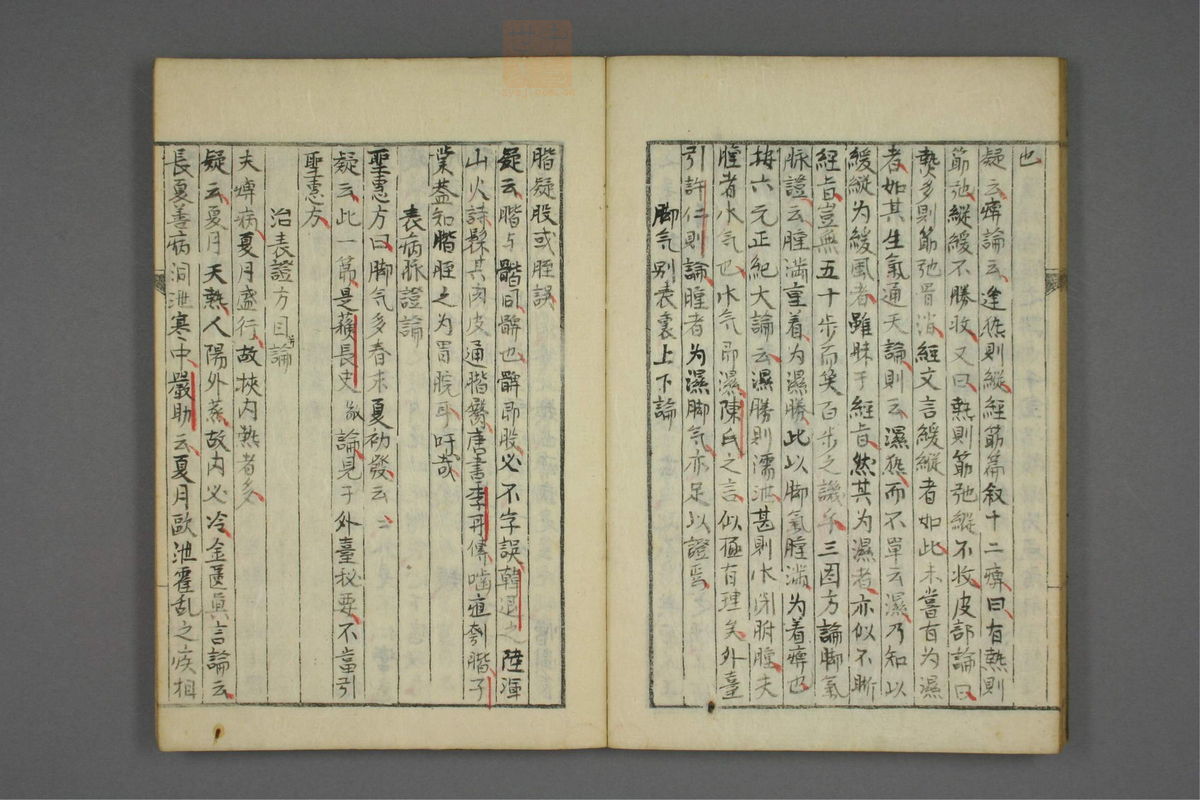 也
疑云痹論云逢熱則縱經筋篇叙十二痹曰有熱則
筋弛縱緩不勝收又曰熱則筋弛縱不收皮部論曰
熱多則筋弛骨消經文言緩縱者如此未嘗有為濕
者如其生氣通天論則云濕熱而不單云濕乃知以
緩縱為緩風者雖昧于經旨然其為濕者亦似不晰
經旨豈無五十步而笑百步之譏乎三因方論脚氣
脉證云腫滿重着為濕勝此以脚氣腫滿為着痹也
按六元正紀大論云濕勝則濡泄甚則水閉胕腫夫
腫者水气也水气即濕陳氏之言似極有理矣外臺
引許仁則論腫者為濕脚气亦足以證焉
脚气别表裏上下論
䏶疑股或脛誤
疑云䏶与髀同髀也髀即股必不字誤韓退之陸渾
山火詩䰍其肉皮通䏶臀唐書李甘傳嚙疽刳䏶子
葉盖知䏶脛之为胃脘耳吁哉
表病脉證論
聖惠方曰脚气多春末夏初發云云
疑云此一節是蘓長史敬論見于外臺秘要不當引
聖惠方
治表證方目論
夫痺病夏月盛行故挾内熱者多
疑云夏月天熱人陽外蒸故内必冷金匱眞言論云
長夏善病洞泄寒中嚴助云夏月歐泄霍乱之疾相